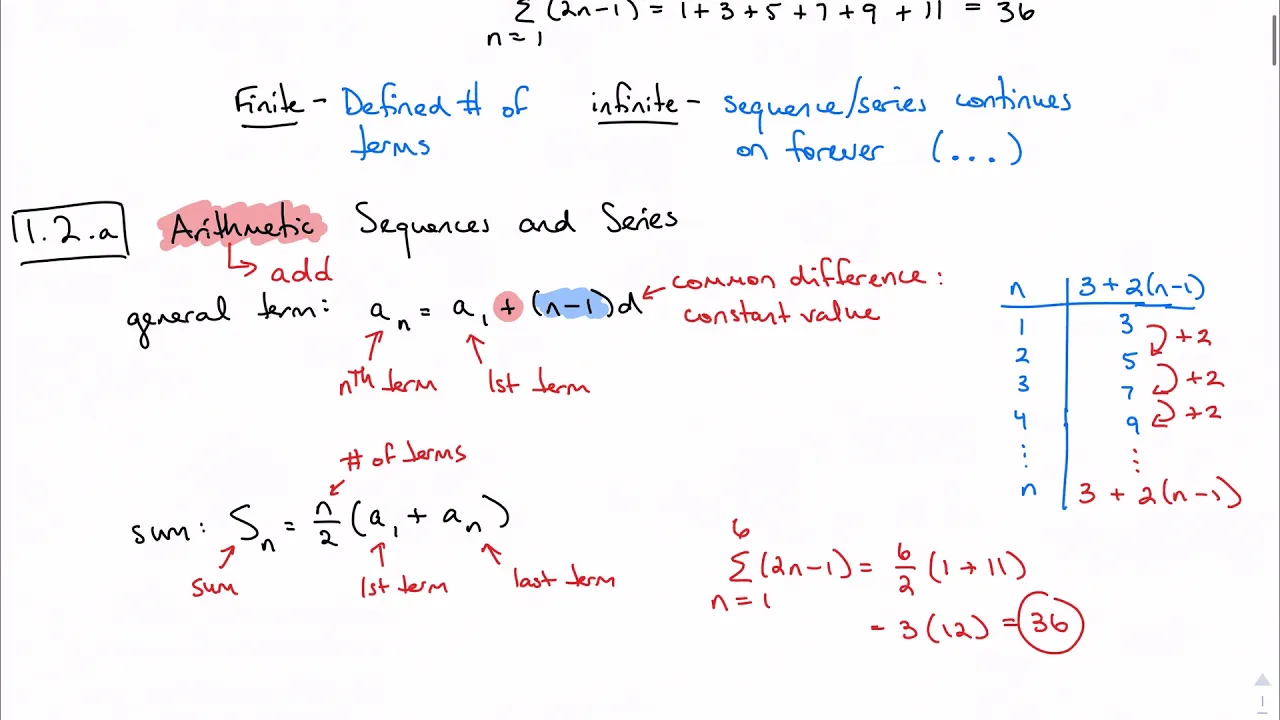 ∑ (2n-1) = 1 + 3 + 5 + 7 + 9 + 11 = 36
n = 1
Finite - Defined # of terms
infinite - sequence/series continues on forever (...)
11.2.a Arithmetic Sequences and Series
add
general term: aₙ = a₁ + (n-1)d
common difference: constant value
nth term
1st term
n | 3 + 2(n-1)
1 | 3
+2
2 | 5
+2
3 | 7
+2
4 | 9
⋮ | ⋮
n | 3 + 2(n-1)
# of terms
sum: Sₙ = n/2 (a₁ + aₙ)
sum
1st term
last term
6
∑ (2n-1) = 6/2 (1 + 11)
n = 1
= 3(12) = 36